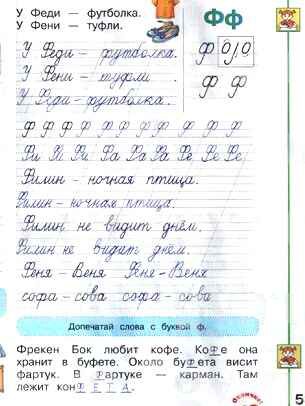 У Феди — футболка.
У Фени — туфли.
Фф
У Феди - футболка.
У Фени - туфли.
У Феди - футболка.
Ф Ф Ф Ф Ф Ф Ф Ф Ф Ф Ф
Фи Фи Фи Фа Фа Фа Фе Фе Фе
Филин - ночная птица.
Филин - ночная птица.
Филин не видит днём.
Филин не видит днём.
Феня - Веня Феня - Веня
софа - сова софа - сова
Допечатай слова с буквой ф.
Фрекен Бок любит кофе. КоФе она
хранит в буфете. Около буФета висит
фартук. В Фартуке — карман. Там
лежит конФЕТА.
5